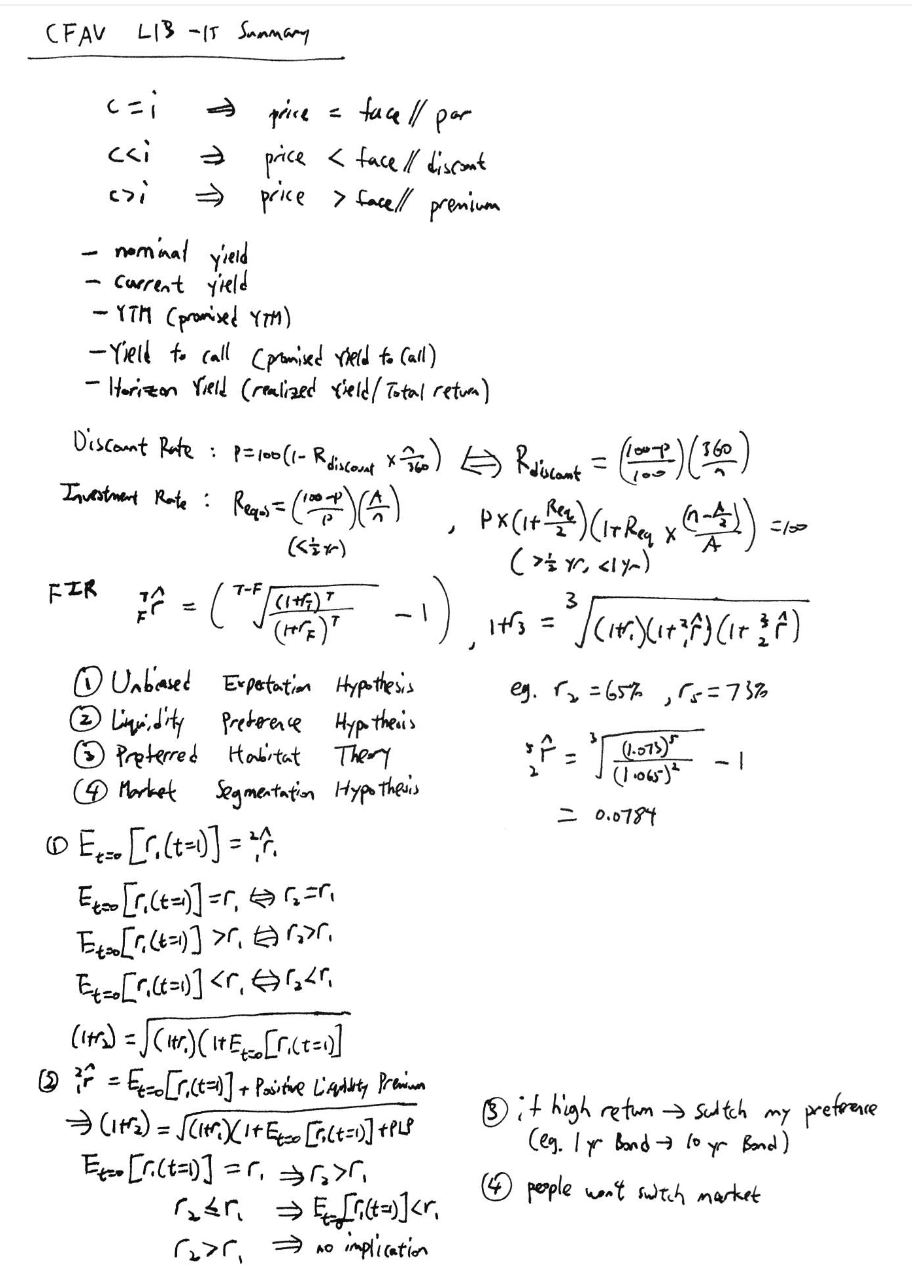 CFAV L13 -15 Summary
c=i ⇒ price = face // par
c<i ⇒ price < face // discount
c>i ⇒ price > face // premium
- nominal yield
- current yield
- YTM (promised YTM)
- Yield to call (promised yield to call)
- Horizon Yield (realized yield/Total return)
Discount Rate : P=100(1- R_discount × n/360) ⇔ R_discount = (100-P/100)(360/n)
Investment Rate : R_equiv = (100-P/P)(A/n) , P×(1+ R_eq/2)(1+R_eq × (n-A/2)/A) =100
(<½ yr) (>½ yr, <1yr)
FIR ^T_F r̂ = (^{T-F}√((1+r_T)^T/(1+r_F)^T) -1) , 1+r₃ = ³√((1+r₁)(1+²₁r̂)(1+³₂r̂))
① Unbiased Expectation Hypothesis
② Liquidity Preference Hypothesis
③ Preferred Habitat Theory
④ Market Segmentation Hypothesis
eg. r₂ = 65% , r₅ = 73%
⁵₂r̂ = ³√((1.073)⁵/(1.065)²) - 1
= 0.0784
① E_{t=0}[r₁(t=1)] = ²₁r̂₁
E_{t=0}[r₁(t=1)] = r₁ ⇔ r₂=r₁
E_{t=0}[r₁(t=1)] > r₁ ⇔ r₂>r₁
E_{t=0}[r₁(t=1)] < r₁ ⇔ r₂<r₁
(1+r₂) = √((1+r₁)(1+E_{t=0}[r₁(t=1)]
② ²₁r̂ = E_{t=0}[r₁(t=1)] + Positive Liquidity Premium
→ (1+r₂) = √((1+r₁)(1+E_{t=0}[r₁(t=1)]+PLP
E_{t=0}[r₁(t=1)] = r₁ ⇒ r₂>r₁
r₂≤r₁ ⇒ E_{t=0}[r₁(t=1)]<r₁
r₂>r₁ ⇒ no implication
③ if high return → switch my preference
(eg. 1 yr Bond → 10 yr Bond)
④ people won't switch market